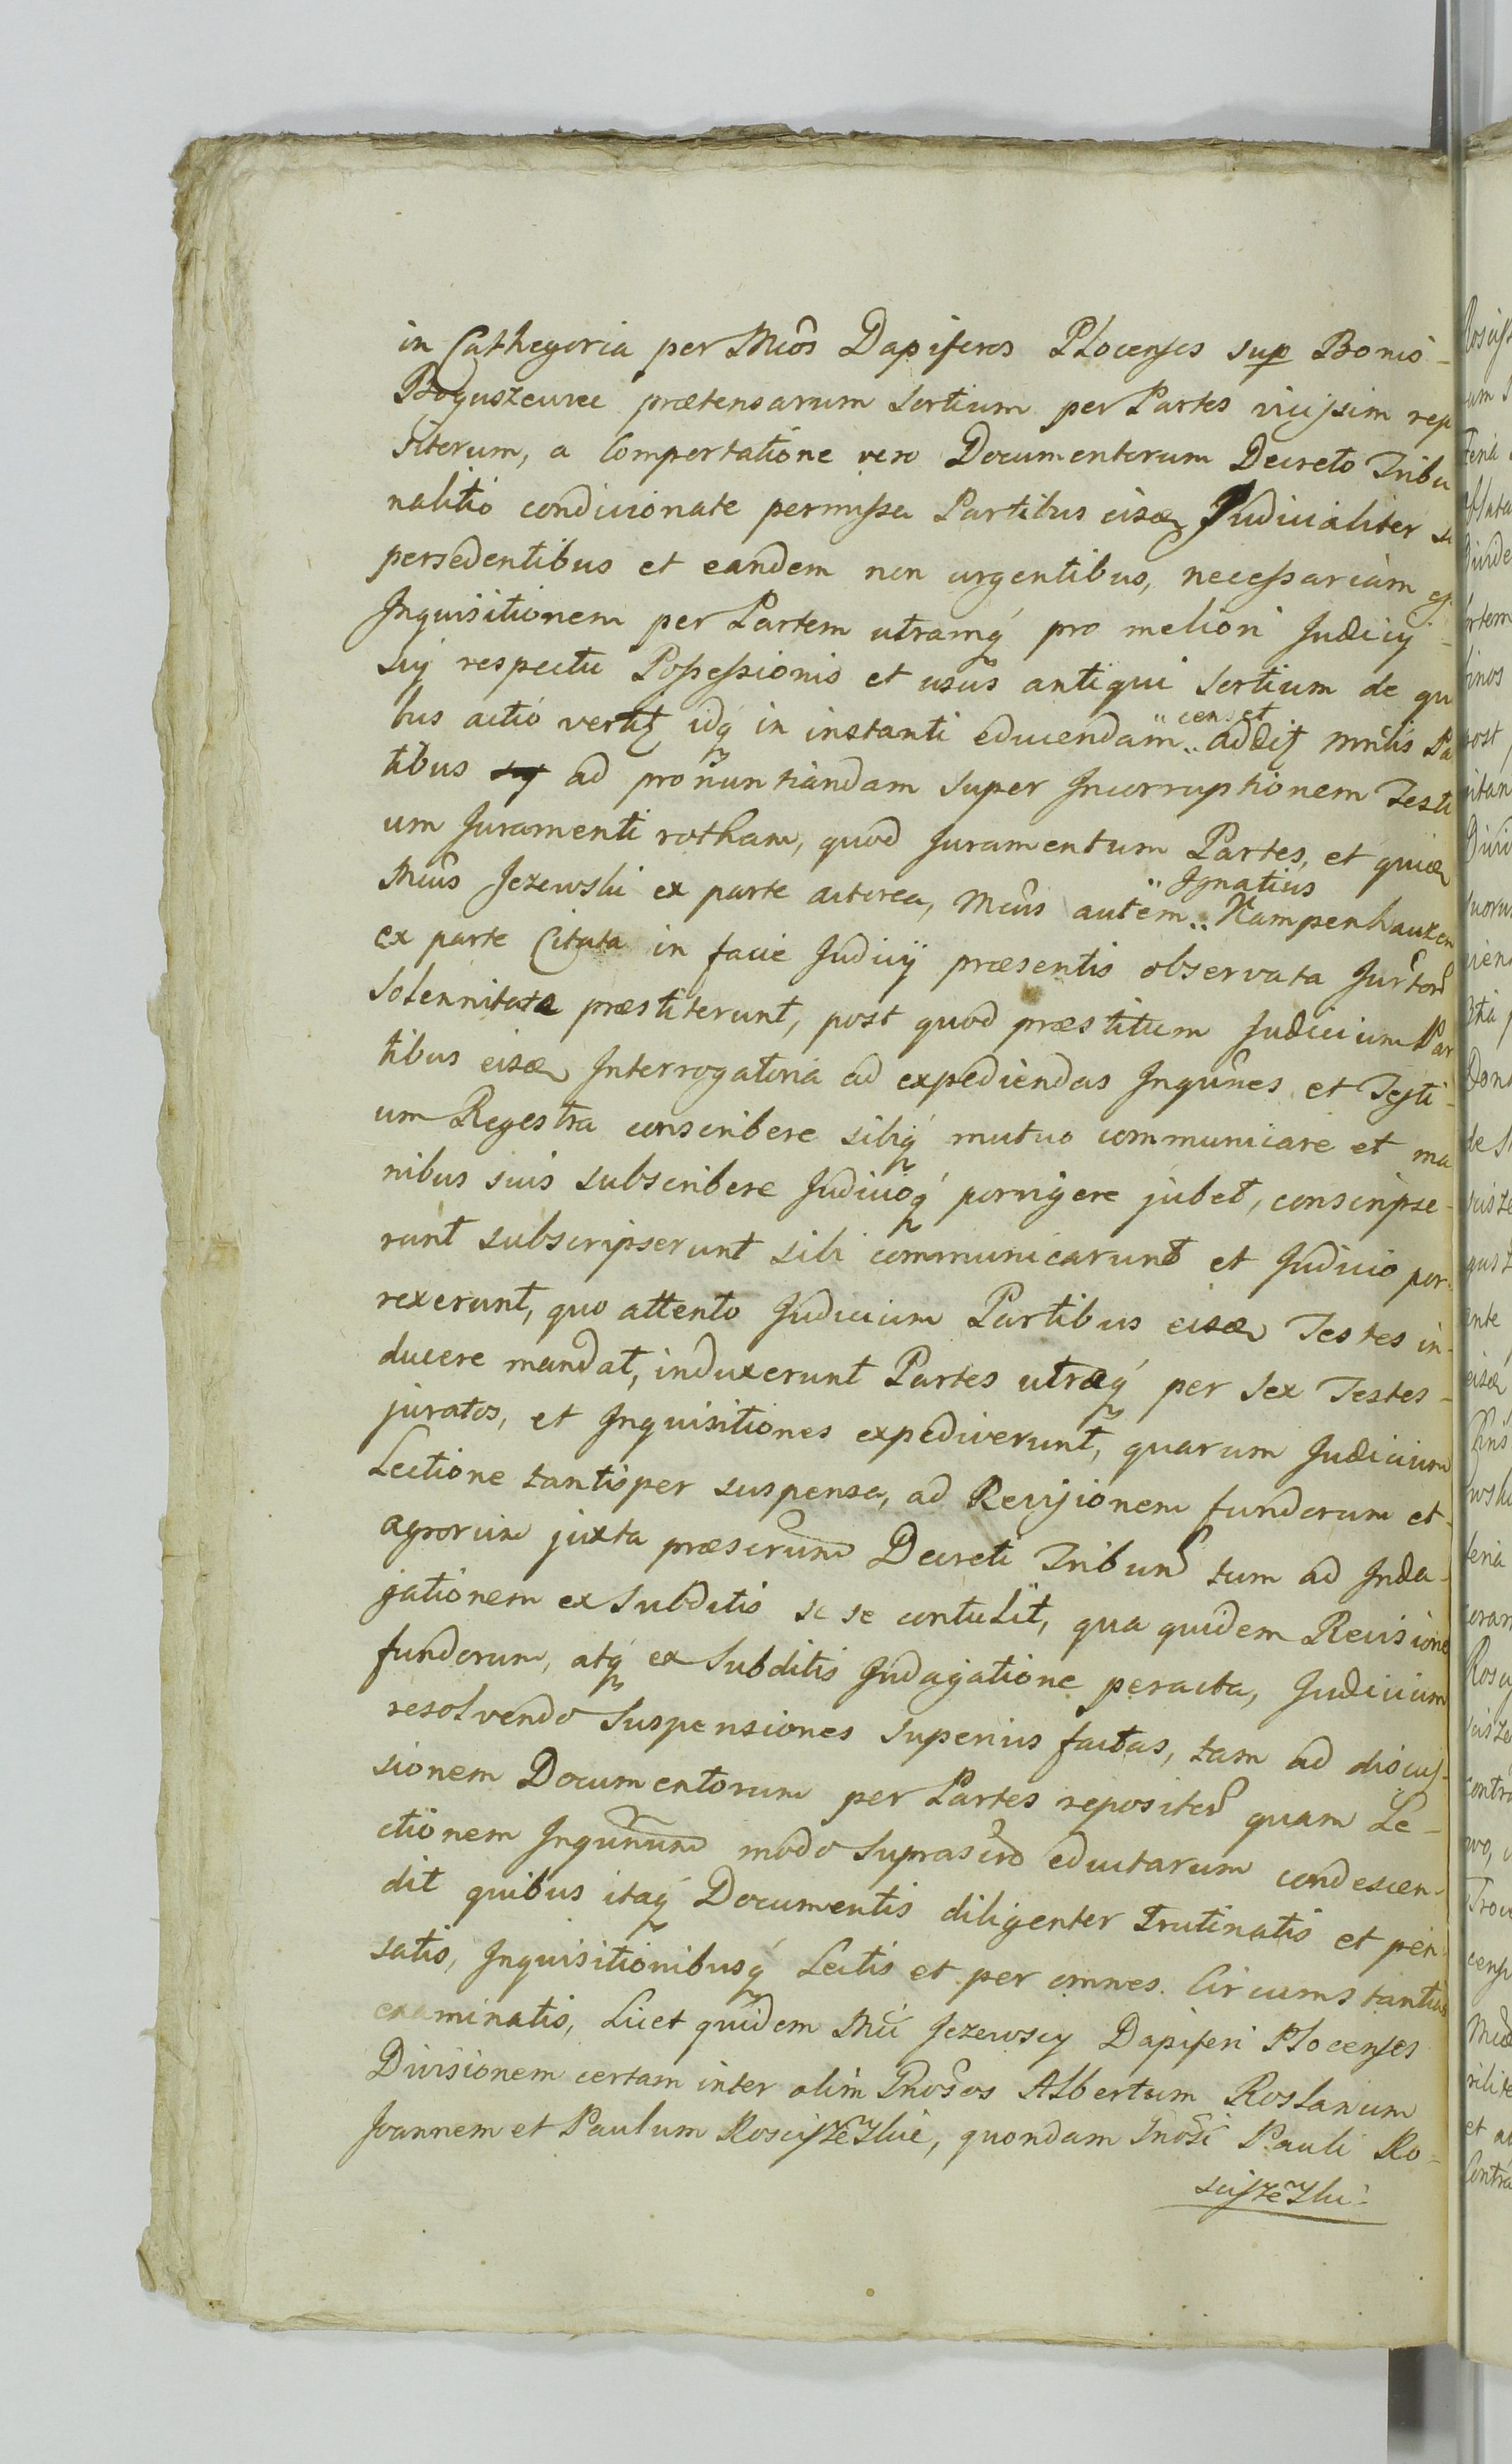 in Cathegoria per Mcôs Dapiferos Plocenses sup Bonis
Boguszewice prætensarum Sortium per Partes vicissim rep
siterum, a Comportatione vero Documentorum Decreto Tribu
nalitio condicionate permissa Partibus eisdem Judicialiter su
persedentibus et eandem non urgentibus, necessariam
Inquisitionem per Partem utramq́ pro meliori Judicij
sij respectu Possessionis et usûs antiqui Sortium de qu
bus actio vertit idq́ in instanti educendam " censet " addit mntis Pa
tibus ad pronuntiandam super Incorruptionem Testi
um Juramenti rotham, quod Juramentum Partes, et quidem
Mcûs Jezewski ex parte actorea, Mcûs autem " Ignatius " Kampenhauzen
ex parte Citata in facie Judicij præsentis observata Jurtor
Solennitate præstiterunt, post quod præstitum Judicium Par
tibus eisdem Interrogatoria ad expediendas Inquines et Testi-
um Regestra conscribere sibiq́ mutuo communicare et ma
nibus suis subscribere Judicioq́ porrigere jubet, conscripse-
runt subscripserunt sibi communicarunt et Judicio por-
rexerunt, quo attento Judicium Partibus eisdem Testes in-
ducere mandat, induxerunt Partes utræq́ per Sex Testes-
juratos, et Inquisitiones expediverunt, quarum Judicium
Lectione tantisper suspensa, ad Revisionem fundorum et-
agrorum juxta præscrum Decreti Tribun tum ad Inda-
gationem ex Subditis se se contulit, qua quidem Revisione
fundorum, atq́ ex Subditis Indagatione peracta, Judicium
resolvendo Suspensiones Superius factas, tam ad discus-
sionem Documentorum per Partes reposite quam Le-
ctionem Inqunum modo Suprascro eductarum condescen-
dit quibus itaq́ Documentis diligenter Trutinatis et pen-
satis, Inquisitionibusq́ Lectis et per omnes Circumstantias
examinatis, Licet quidem Mcî Jezewscy Dapiferi Plocenses
Divisionem certam inter olim Gnôsos Albertum Roslanium
Joannem et Paulum Roscisze͂skie, quondam Gnôsi Pauli Ro-
scisze͂ski